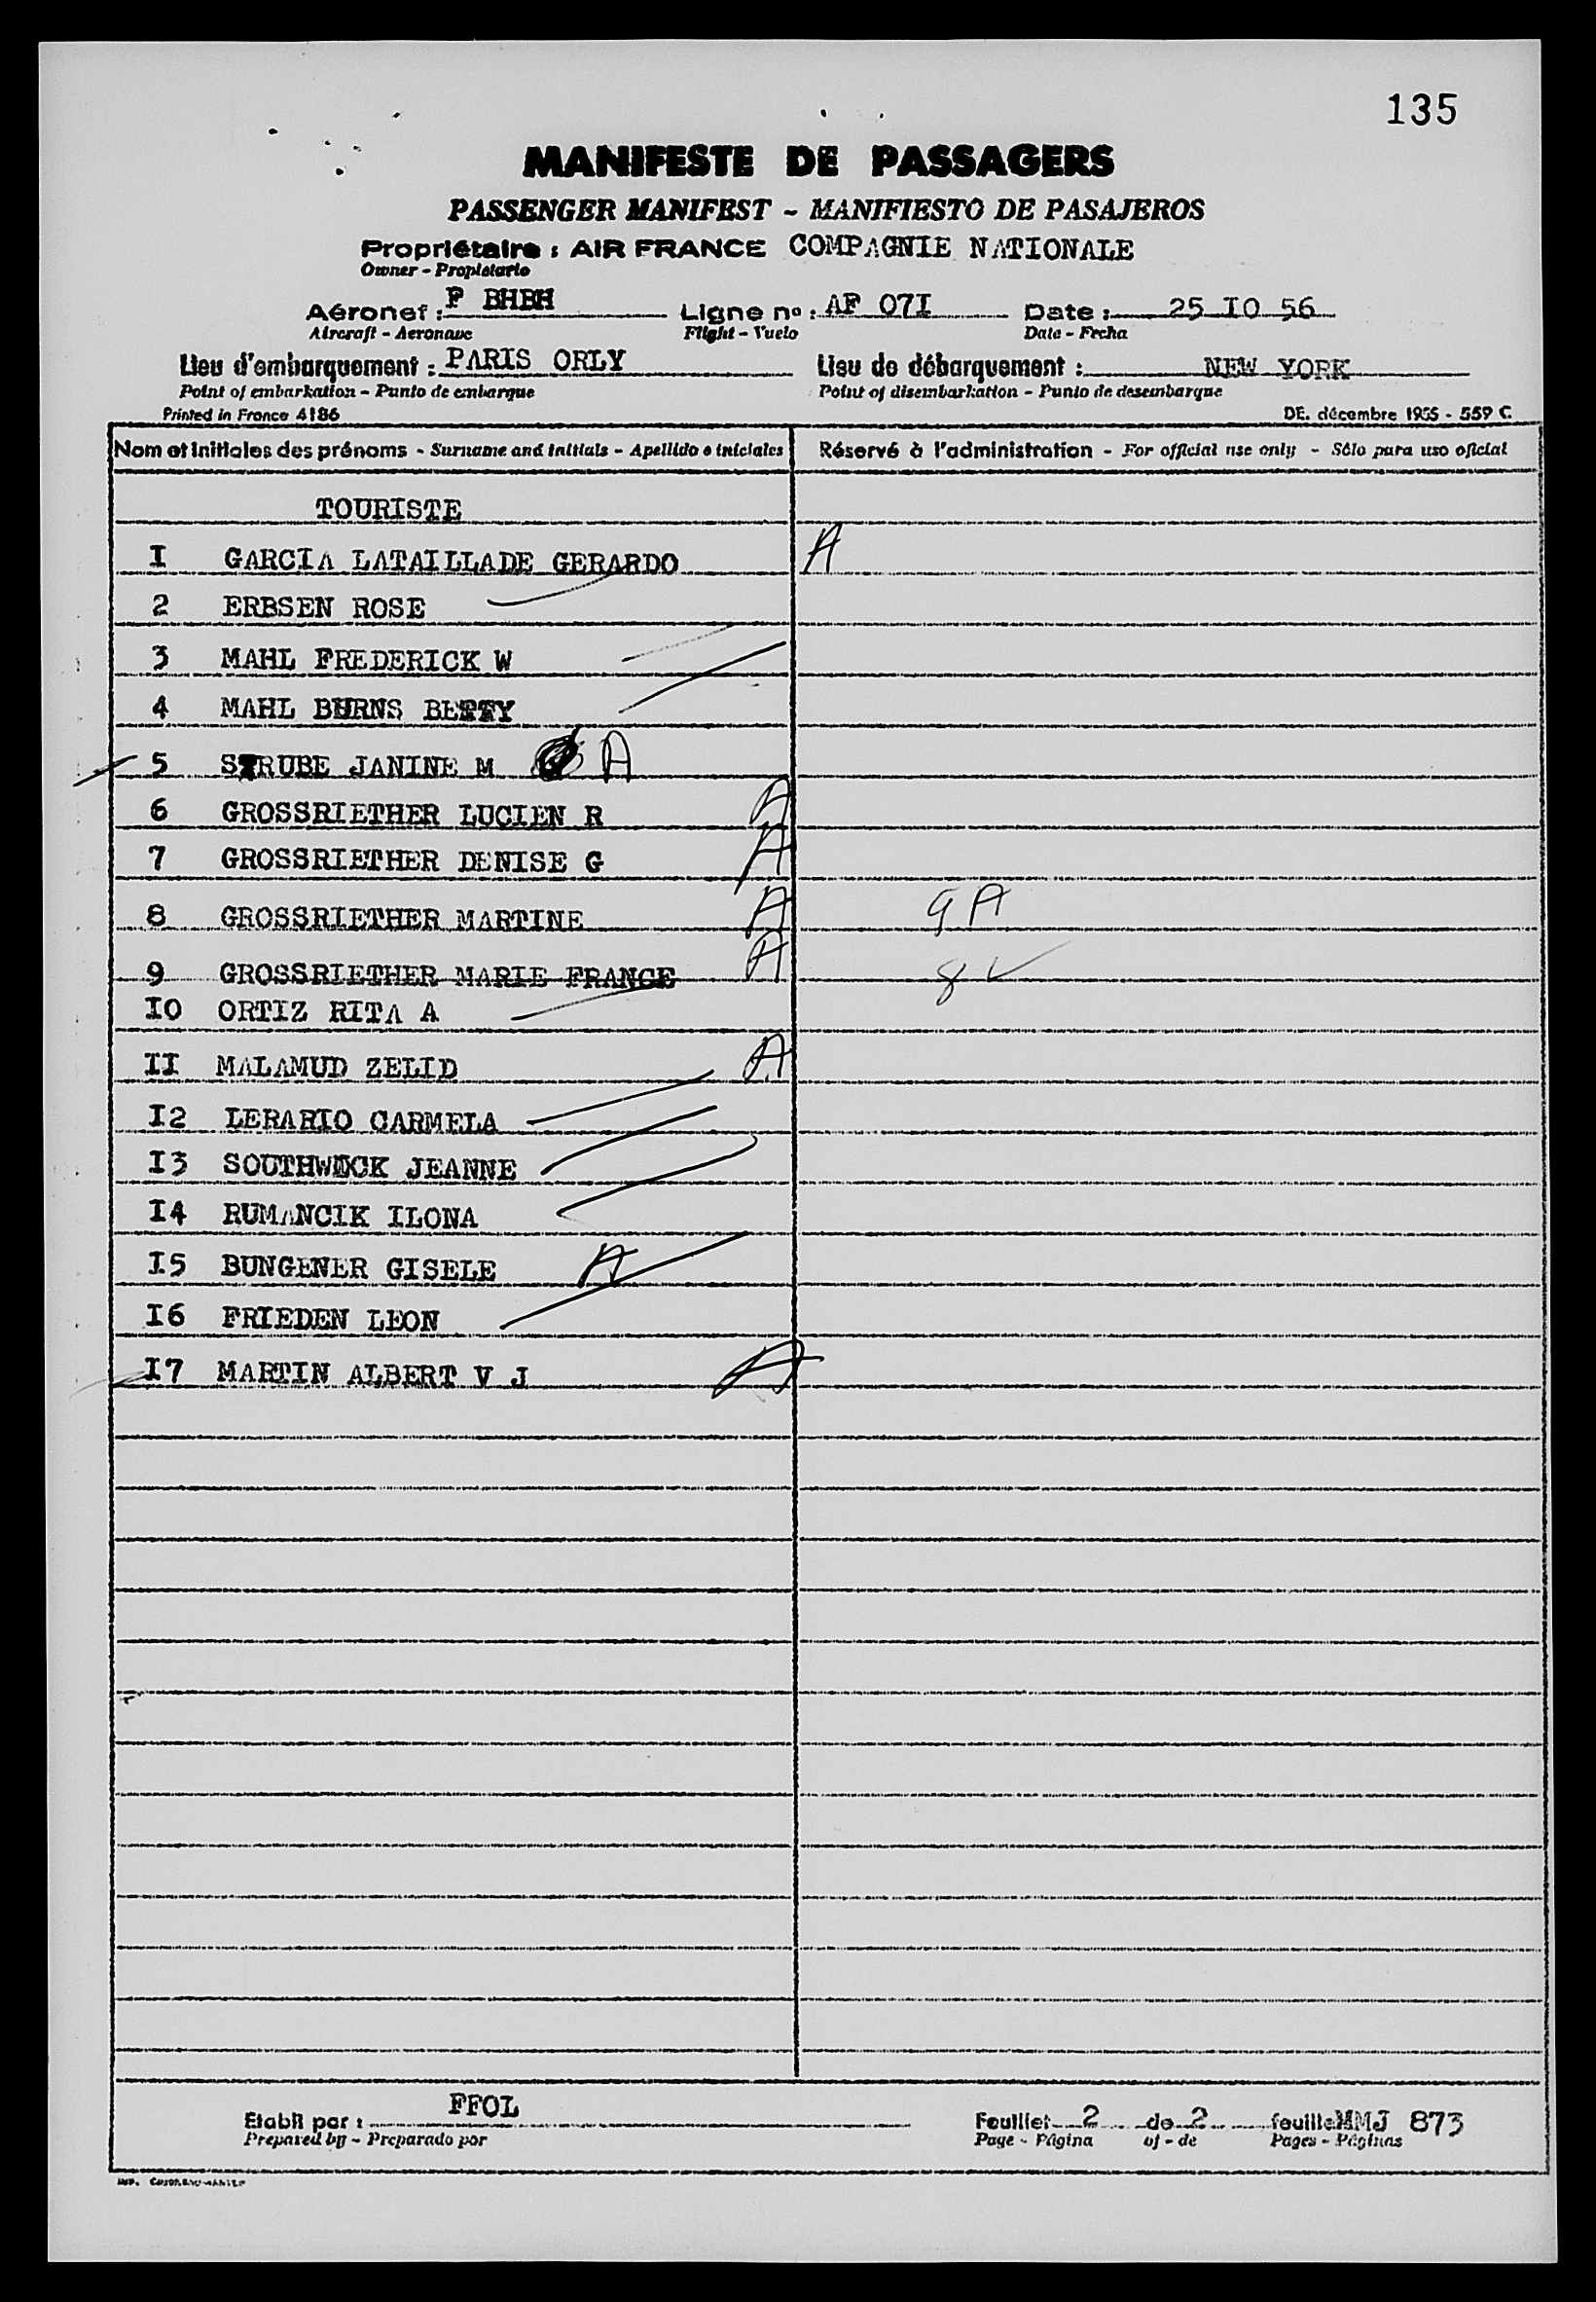 135
MANIFESTE DE PASSAGERS
PASSENGER MANIFEST - MANIFIESTO DE PASAJEROS
Propriétaire : AIR FRANCE COMPAGNIE NATIONALE
Owner - Propietario
Aéronef : F BHBH Ligne nº : AF 07I Date : 25 IO 56
Aircraft - Aeronave Flight - Vuelo Date - Fecha
Lieu d'embarquement : PARIS ORLY Lieu de débarquement : NEW YORK
Point of embarkation - Punto de embarque Point of disembarkation - Punto de desembarque
Printed in France 4186 DE. décembre 1955 - 559 C
Nom et initiales des prénoms - Surname and initials - Apellido e iniciales Réservé à l'administration - For official use only - Sólo para uso oficial
TOURISTE
I GARCIA LATAILLADE GERARDO A
2 ERBSEN ROSE
3 MAHL FREDERICK W
4 MAHL BURNS BETTY
5 STRUBE JANINE M A
6 GROSSRIETHER LUCIEN R A
7 GROSSRIETHER DENISE G A
8 GROSSRIETHER MARTINE A 9 A
9 GROSSRIETHER MARIE FRANCE A 8 ✓
IO ORTIZ RITA A
II MALAMUD ZELID A
I2 LERARIO CARMELA
I3 SOUTHWICK JEANNE
I4 RUMANCIK ILONA
I5 BUNGENER GISELE A
I6 FRIEDEN LEON
I7 MARTIN ALBERT V J A
Etabli par : FFOL Feuillet 2 de 2 feuille MMJ 873
Prepared by - Preparado por Page - Página of - de Pages - Páginas